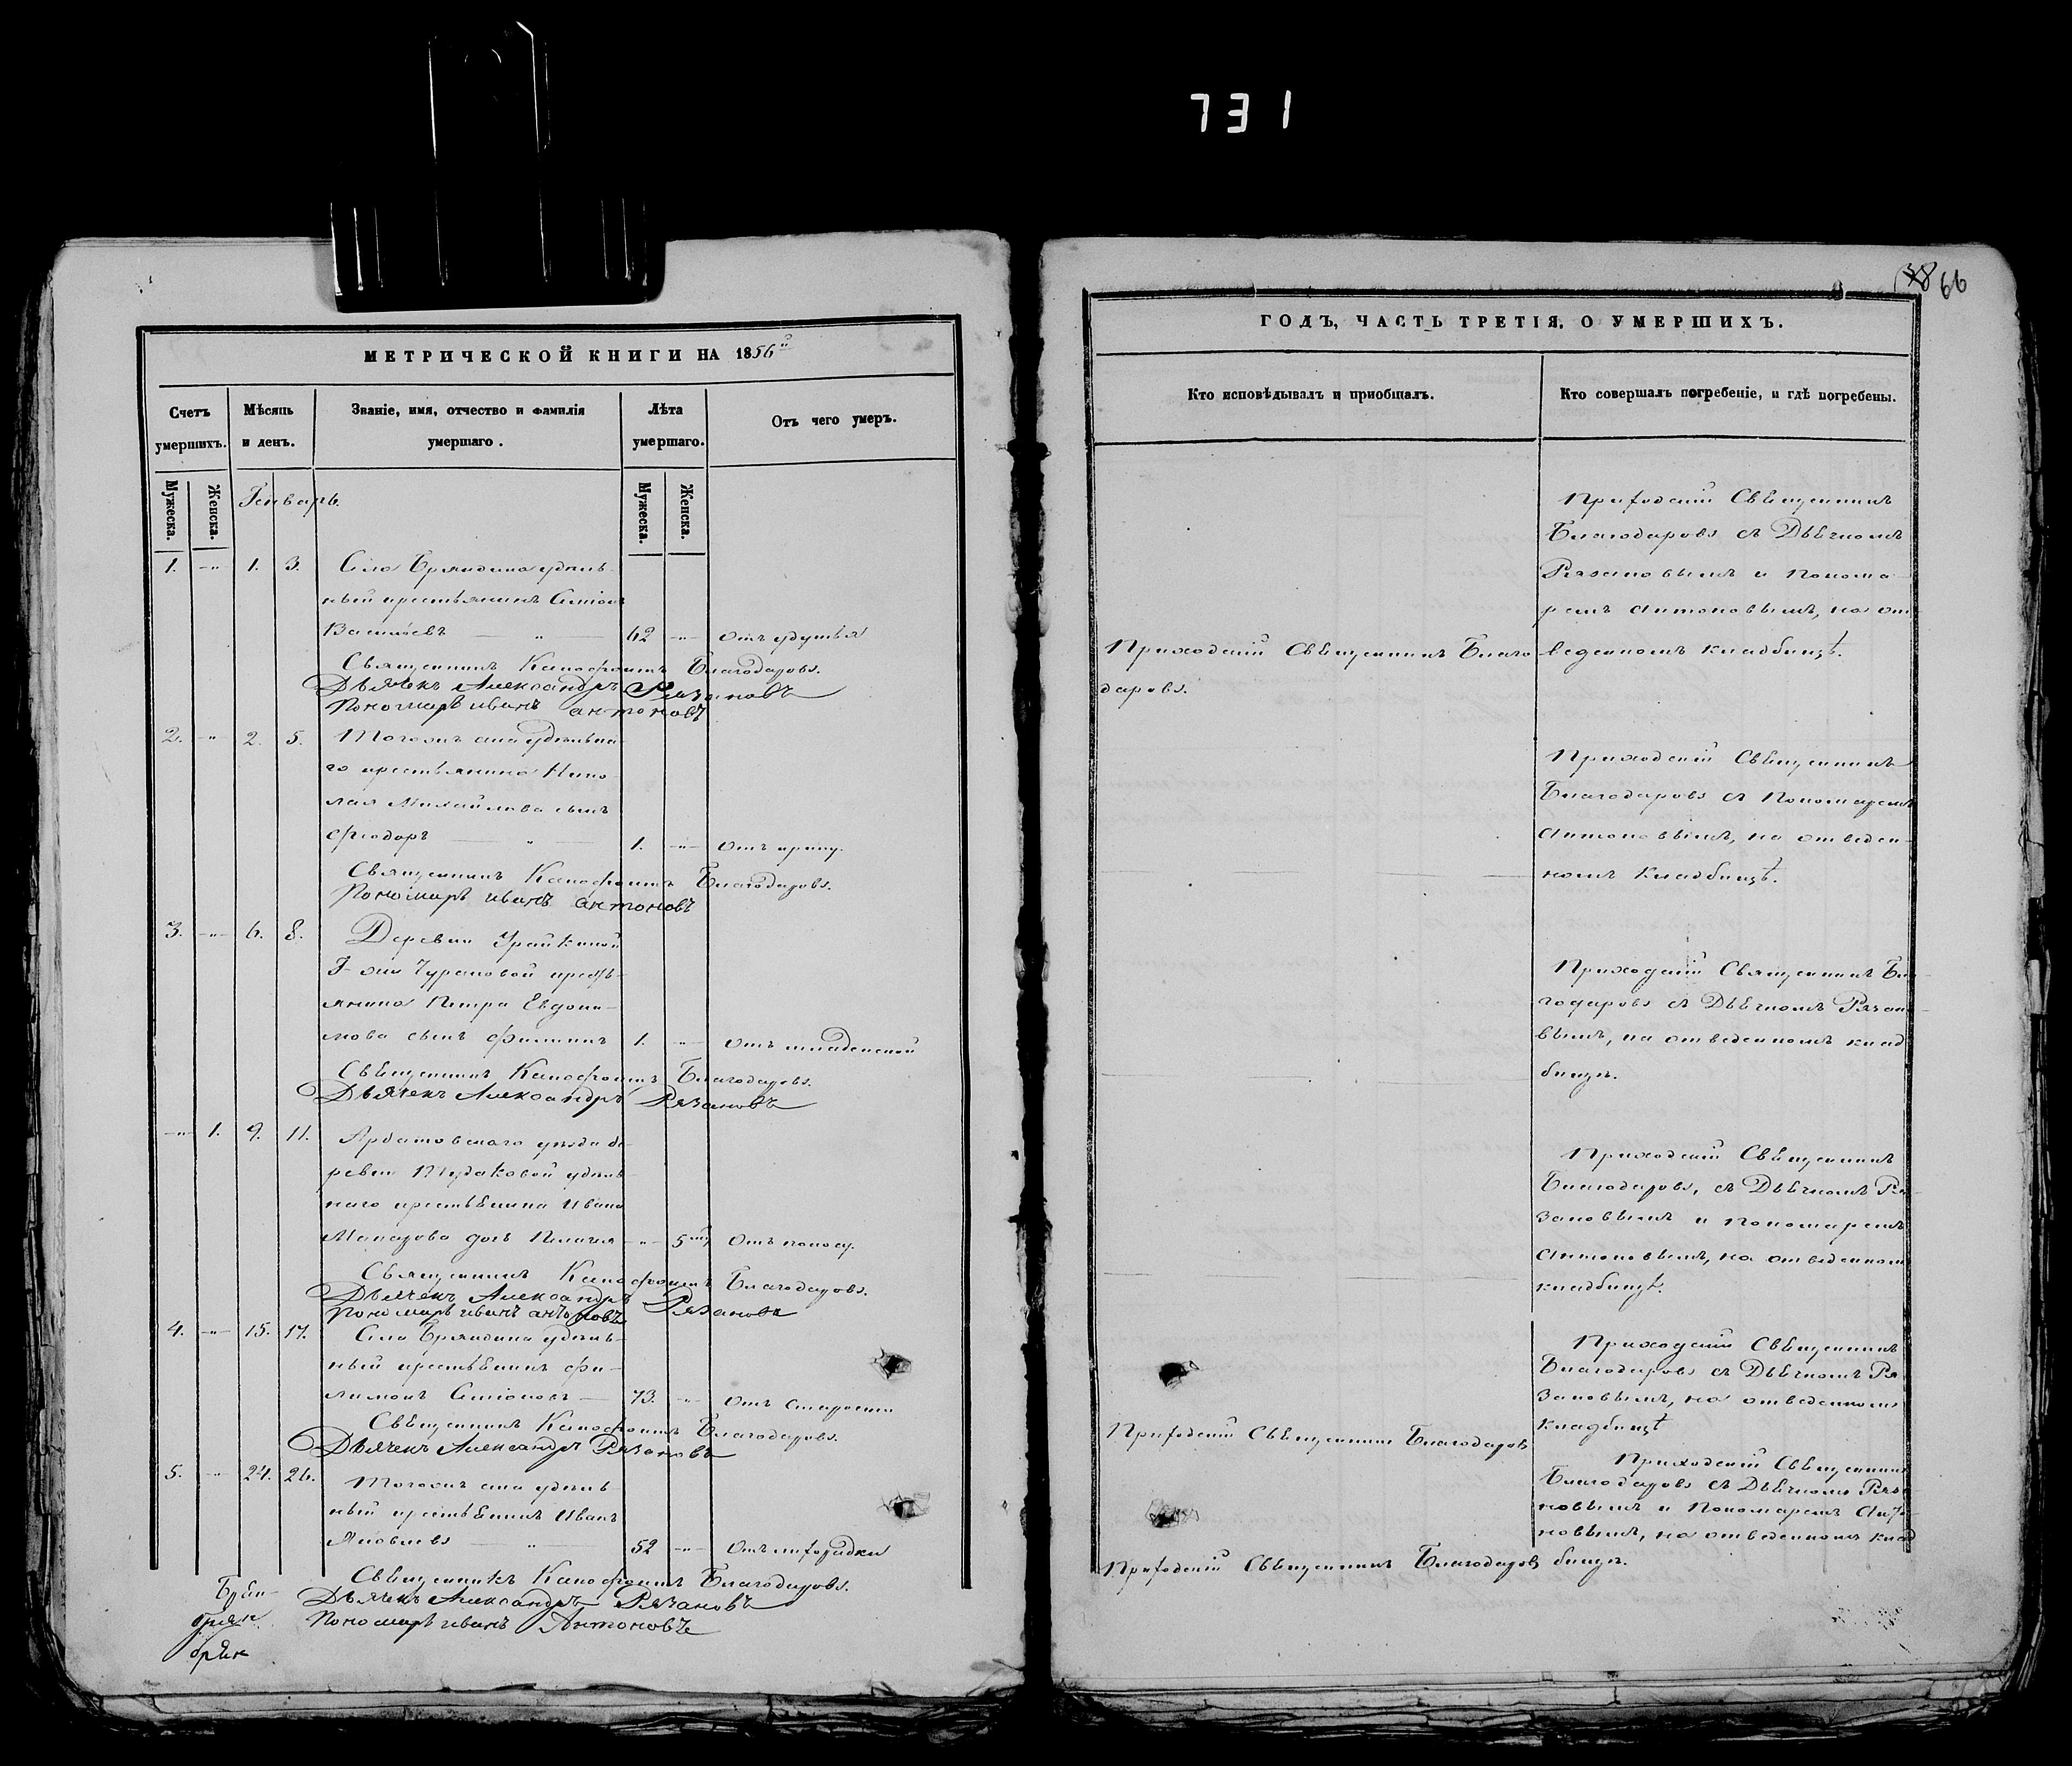 731
МЕТРИЧЕСКОЙ КНИГИ НА 1856й
Счетъ умершихъ.
Мѣсяцъ и день.
Званіе, имя, отчество и фамилія умершаго.
Лѣта умершаго.
Отъ чего умеръ.
Мужеска.
Женска.
Мужеска.
Женска.
Генварь.
1. -"- 1. 3. Села Бряндина удѣль-
ный крестьянинъ Симіонъ
Васильевъ — " — 62 -"- Отъ удушья
Священникъ Ксенофонтъ Благодаровъ.
Дьячекъ Александръ Рязановъ
Пономарь иванъ антоновъ
2. -"- 2. 5. Тогожъ села удѣльна-
го крестьянина Нико-
лая Михайлова сынъ
Ѳеодоръ — " — 1. -"- Отъ крику.
Священникъ Ксенофонтъ Благодаровъ.
Пономарь иванъ антоновъ
3. -"- 6. 8. Деревни Урайкиной
крестья-
янина Петра Евдоки-
мова сынъ Филиппъ 1. -"- Отъ младенской
Священникъ Ксенофонтъ Благодаровъ.
Дьячекъ Александръ Рязановъ
-"- 1. 9. 11. Ардатовскаго уѣзда де-
ревни Тудаковой удѣль-
наго крестьянина Ивана
дочь Пелагія -"- 5 Отъ поносу.
Священникъ Ксенофонтъ Благодаровъ.
Дьячекъ Александръ Рязановъ
Пономарь иванъ антоновъ
4. -"- 15. 17. Села Бряндина удѣль-
ный крестьянинъ Фи-
лимонъ Симіоновъ — 73. -"- Отъ старости
Священникъ Ксенофонтъ Благодаровъ.
Дьячекъ Александръ Рязановъ
5. -"- 24. 26. Тогожъ села удѣль-
ный крестьянинъ Иванъ
Яковлевъ — " — 52 -"- Отъ лихорадки
Священникъ Ксенофонтъ Благодаровъ.
Дьячекъ Александръ Рязановъ
Пономарь иванъ Антоновъ
66
ГОДЪ, ЧАСТЬ ТРЕТІЯ, О УМЕРШИХЪ.
Кто исповѣдывалъ и приобщалъ.
Кто совершалъ погребеніе, и гдѣ погребены.
Приходскій Священникъ Благо-
даровъ.
Приходскій Священникъ
Благодаровъ съ Дьячкомъ
Рязановымъ и Понома-
ремъ Антоновымъ, на от-
веденномъ кладбищѣ.
Приходскій Священникъ
Благодаровъ съ Пономаремъ
Антоновымъ, на отведен-
номъ Кладбищѣ.
Приходскій Священникъ Бла-
годаровъ съ Дьячкомъ Рязано-
вымъ, на отведенномъ клад-
бищѣ.
Приходскій Священникъ
Благодаровъ, съ Дьячкомъ Ря-
зановымъ и пономаремъ
Антоновымъ, на отведенномъ
кладбищѣ.
Приходскій Священникъ Благодаровъ
Приходскій Священникъ
Благодаровъ съ Дьячкомъ Ря-
зановымъ, на отведенномъ
кладбищѣ
Приходскій Священникъ Благодаровъ
Приходскій Священникъ
Благодаровъ съ Дьячкомъ Ряза-
новымъ и Пономаремъ Анто-
новымъ, на отведенномъ клад-
бищѣ.